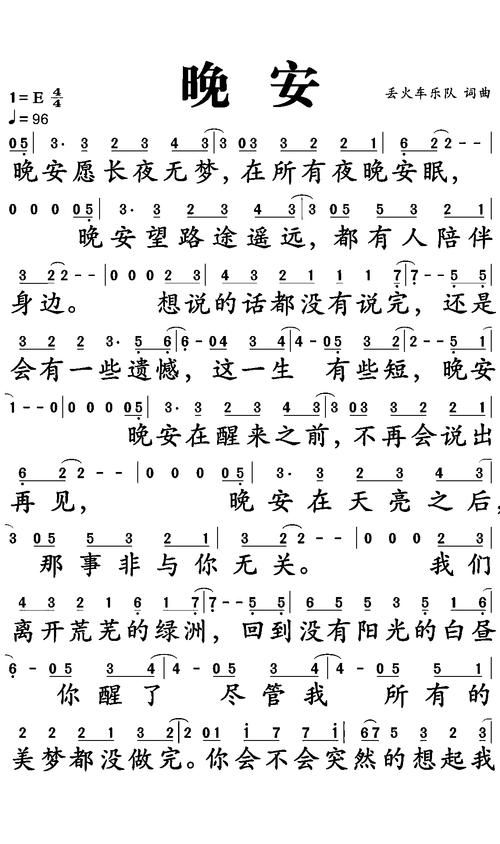 晚 安
丢火车乐队 词曲
1=E 4/4
♩=96
05 | 3· 3 2 3 4 3 | 3 03 3 2 21 | 6 2 2 - - |
晚安愿长夜无梦,在所有夜晚安眠,
0 0 0 05 | 3· 3 2 3 4 3 | 3 05 5 3 21 |
晚安望路途遥远,都有人陪伴
3 2 2 - - | 0 0 0 23 | 4 3 2 1 1 1 7 | 7 - - 5 5 |
身边。 想说的话都没有说完,还是
3 2 2 3 5 6 | 6 - 04 34 | 4 - 05 32 | 2 - - 55 |
会有一些遗憾,这一生 有些短,晚安
1 - - 0 | 0 0 0 05 | 3· 3 2 3 4 3 | 3 03 3 2 21 |
晚安在醒来之前,不再会说出
6 2 2 - - | 0 0 0 05 | 3· 3 2 3 4 3 |
再见, 晚安在天亮之后,
3 05 5 3 2 1 | 3 2 2 - - | 0 0 0 23 |
那事非与你无关。 我们
4 3 2 1 6 1 7 | 7 - - 5 5 | 6 5 5 3 5 1 6 |
离开荒芜的绿洲,回到没有阳光的白昼
6 - 05 34 | 4 - 05 34 | 4 - 05 34 |
你醒了 尽管我 所有的
2 2 2 1 3 2 | 2 01 1 7 7 1 | 1 67 5 3 23 |
美梦都没做完。你会不会突然的想起我